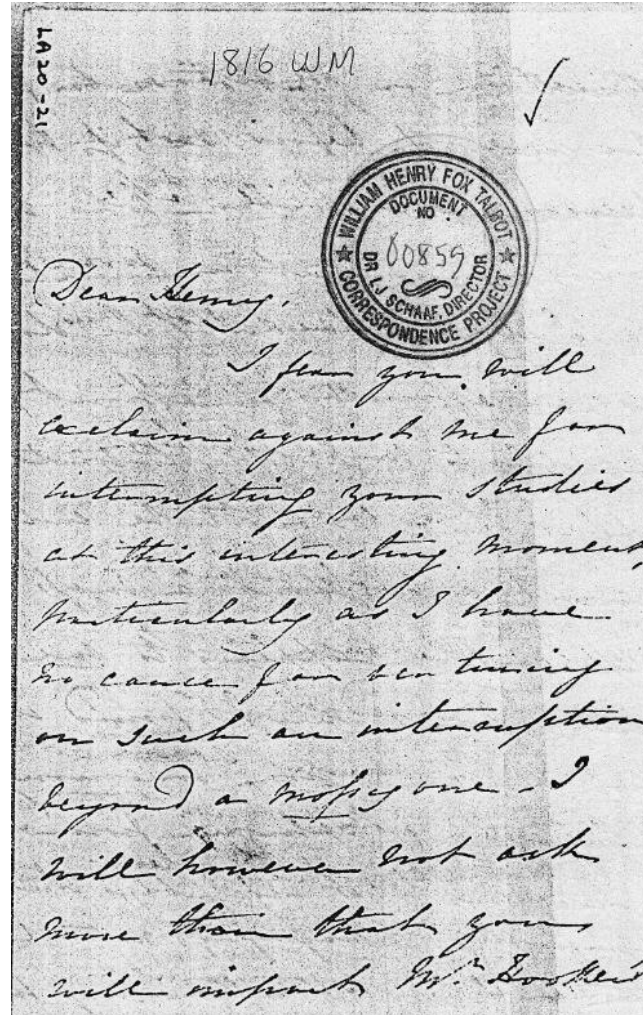 LA20-21
1816 WM
WILLIAM HENRY FOX TALBOT
DOCUMENT
NO
00859
DR LJ SCHAAF, DIRECTOR
CORRESPONDENCE PROJECT
Dear Henry.
I fear you will
exclaim against me for
interrupting your studies
at this interesting moment,
particularly as I have
no cause for venturing
on such an interruption
beyond a mossy one – I
will however not ask
more than that you
will inspect Mr. Hooker's